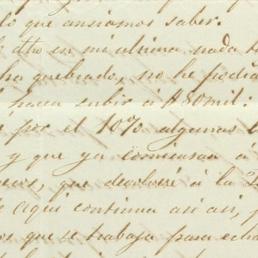 lo que ansiamos saber.
dho en mi ultima nada
ha quebrado, no he podi
hace subir á $ 80 mil:
por el 10% algunas
y que ya comienzan á
que devolveré á la
aqui continua asi asi,
que se trabaja para echa